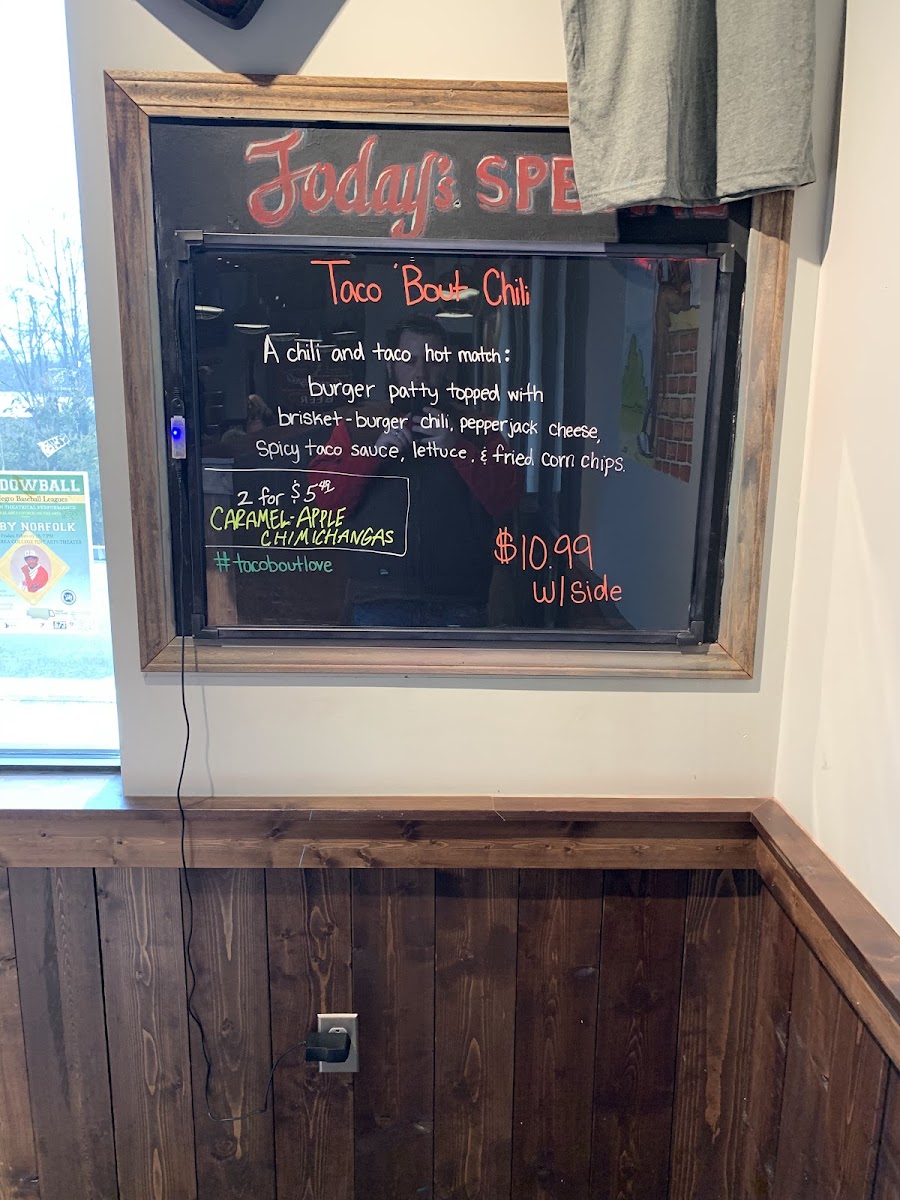 Today's SPE
Taco 'Bout Chili
A chili and taco hot match:
burger patty topped with
brisket-burger chili, pepperjack cheese,
spicy taco sauce, lettuce, & fried corn chips.
2 for $5.49
CARAMEL-APPLE
CHIMICHANGAS
#tacoboutlove
$10.99
w/side
DOWBALL
Negro Baseball Leagues
BY NORFOLK